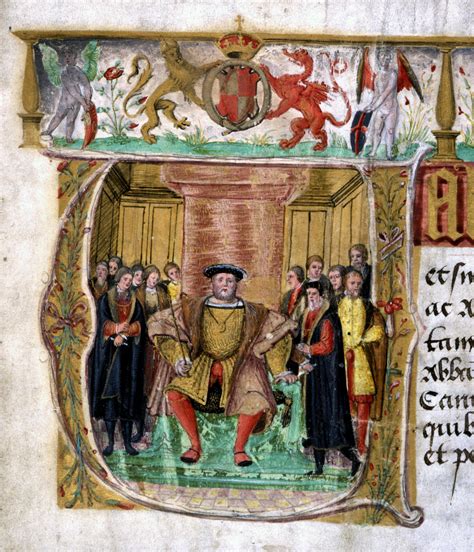 A
et
ac A
tam
Abba
Cam
quib
et pe